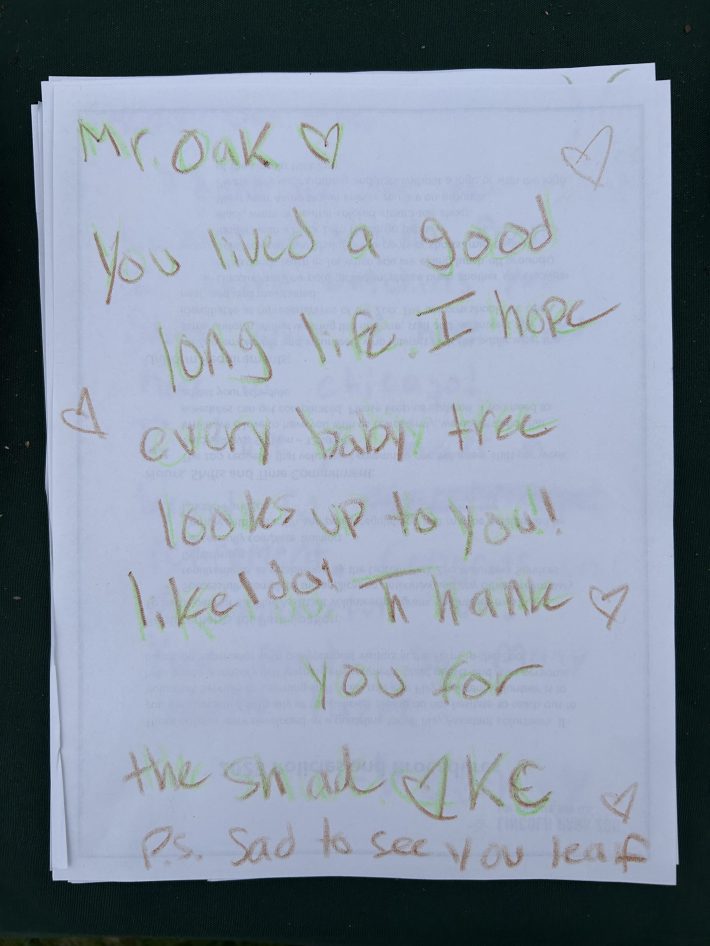 Mr. Oak ♡
You lived a good
long life. I hope
every baby tree
looks up to you!
like I do! Thank
you for
the shad ♡ KE
P.s. Sad to see you leaf